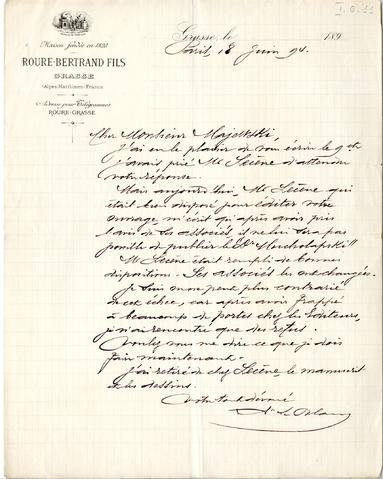 I. 0. 11
Maison fondée en 1820
ROURE-BERTRAND FILS
GRASSE
(Alpes-Maritimes) France
Adresse pour Télégrammes
ROURE-GRASSE
Grasse, le 189
Paris, 18 Juin 94.
Cher Monsieur Majewski
J'ai eu le plaisir de vous écrire le 9 et
j'avais prié Mr Lecène d'attendre
votre réponse.
Mais aujourd'hui, Mr Lecène qui
était bien disposé pour éditer votre
ouvrage, m'écrit qu'après avoir pris
l'avis de ses associés il ne lui sera pas
possible de publier le
Mr Lecène était rempli de bonnes
dispositions. Ses associés les ont changées.
Je suis on ne peut plus contrarié
de cet échec, car après avoir frappé
à beaucoup de portes chez les Editeurs,
je n'ai rencontré que des refus.
Voulez vous me dire ce que je dois
faire maintenant.
J'ai retiré de chez Lecène, le manuscrit
et les dessins.
Votre tout dévoué